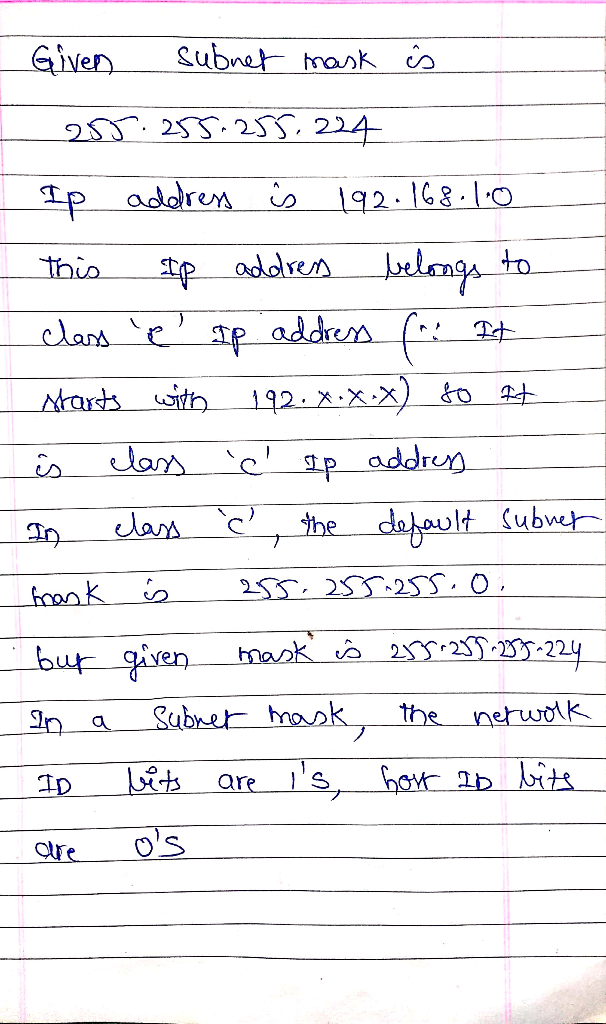 Given subnet mask is
255.255.255.224
Ip address is 192.168.1.0
This Ip address belongs to
class 'c' Ip address (∵ It
starts with 192.x.x.x) so It
is class 'c' Ip address
In class 'c', the default subnet
mask is 255.255.255.0.
but given mask is 255.255.255.224
In a subnet mask, the network
ID bits are 1's, host ID bits
are 0's